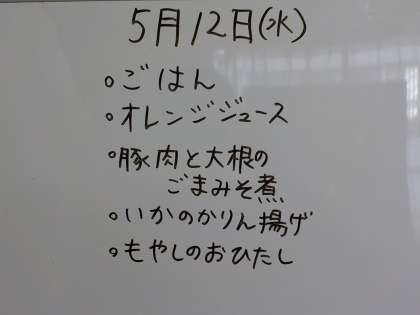 5月12日(水)
○ごはん
○オレンジジュース
○豚肉と大根の
ごまみそ煮
○いかのかりん揚げ
○もやしのおひたし